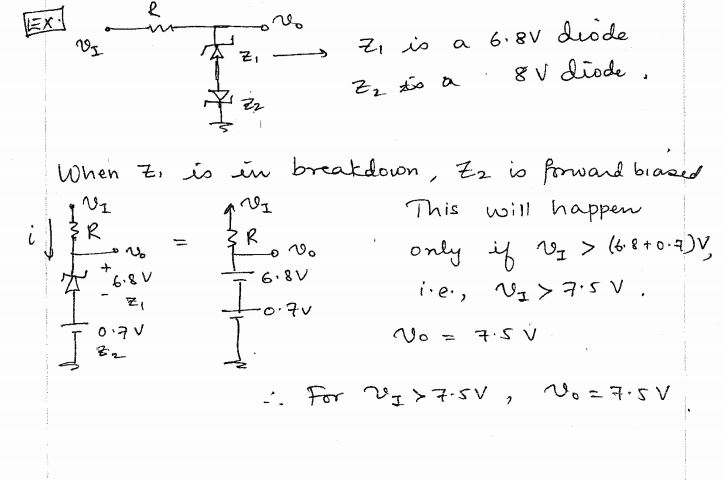 Ex.
R
vI
vo
Z1
Z2
Z1 is a 6.8V diode
Z2 is a 8V diode.
When Z1 is in breakdown, Z2 is forward biased
vI
i
R
vo
+
6.8V
-
Z1
0.7V
Z2
=
vI
R
vo
6.8V
0.7V
This will happen
only if vI > (6.8+0.7)V,
i.e., vI > 7.5 V.
vo = 7.5 V
∴ For vI > 7.5V, vo = 7.5 V.